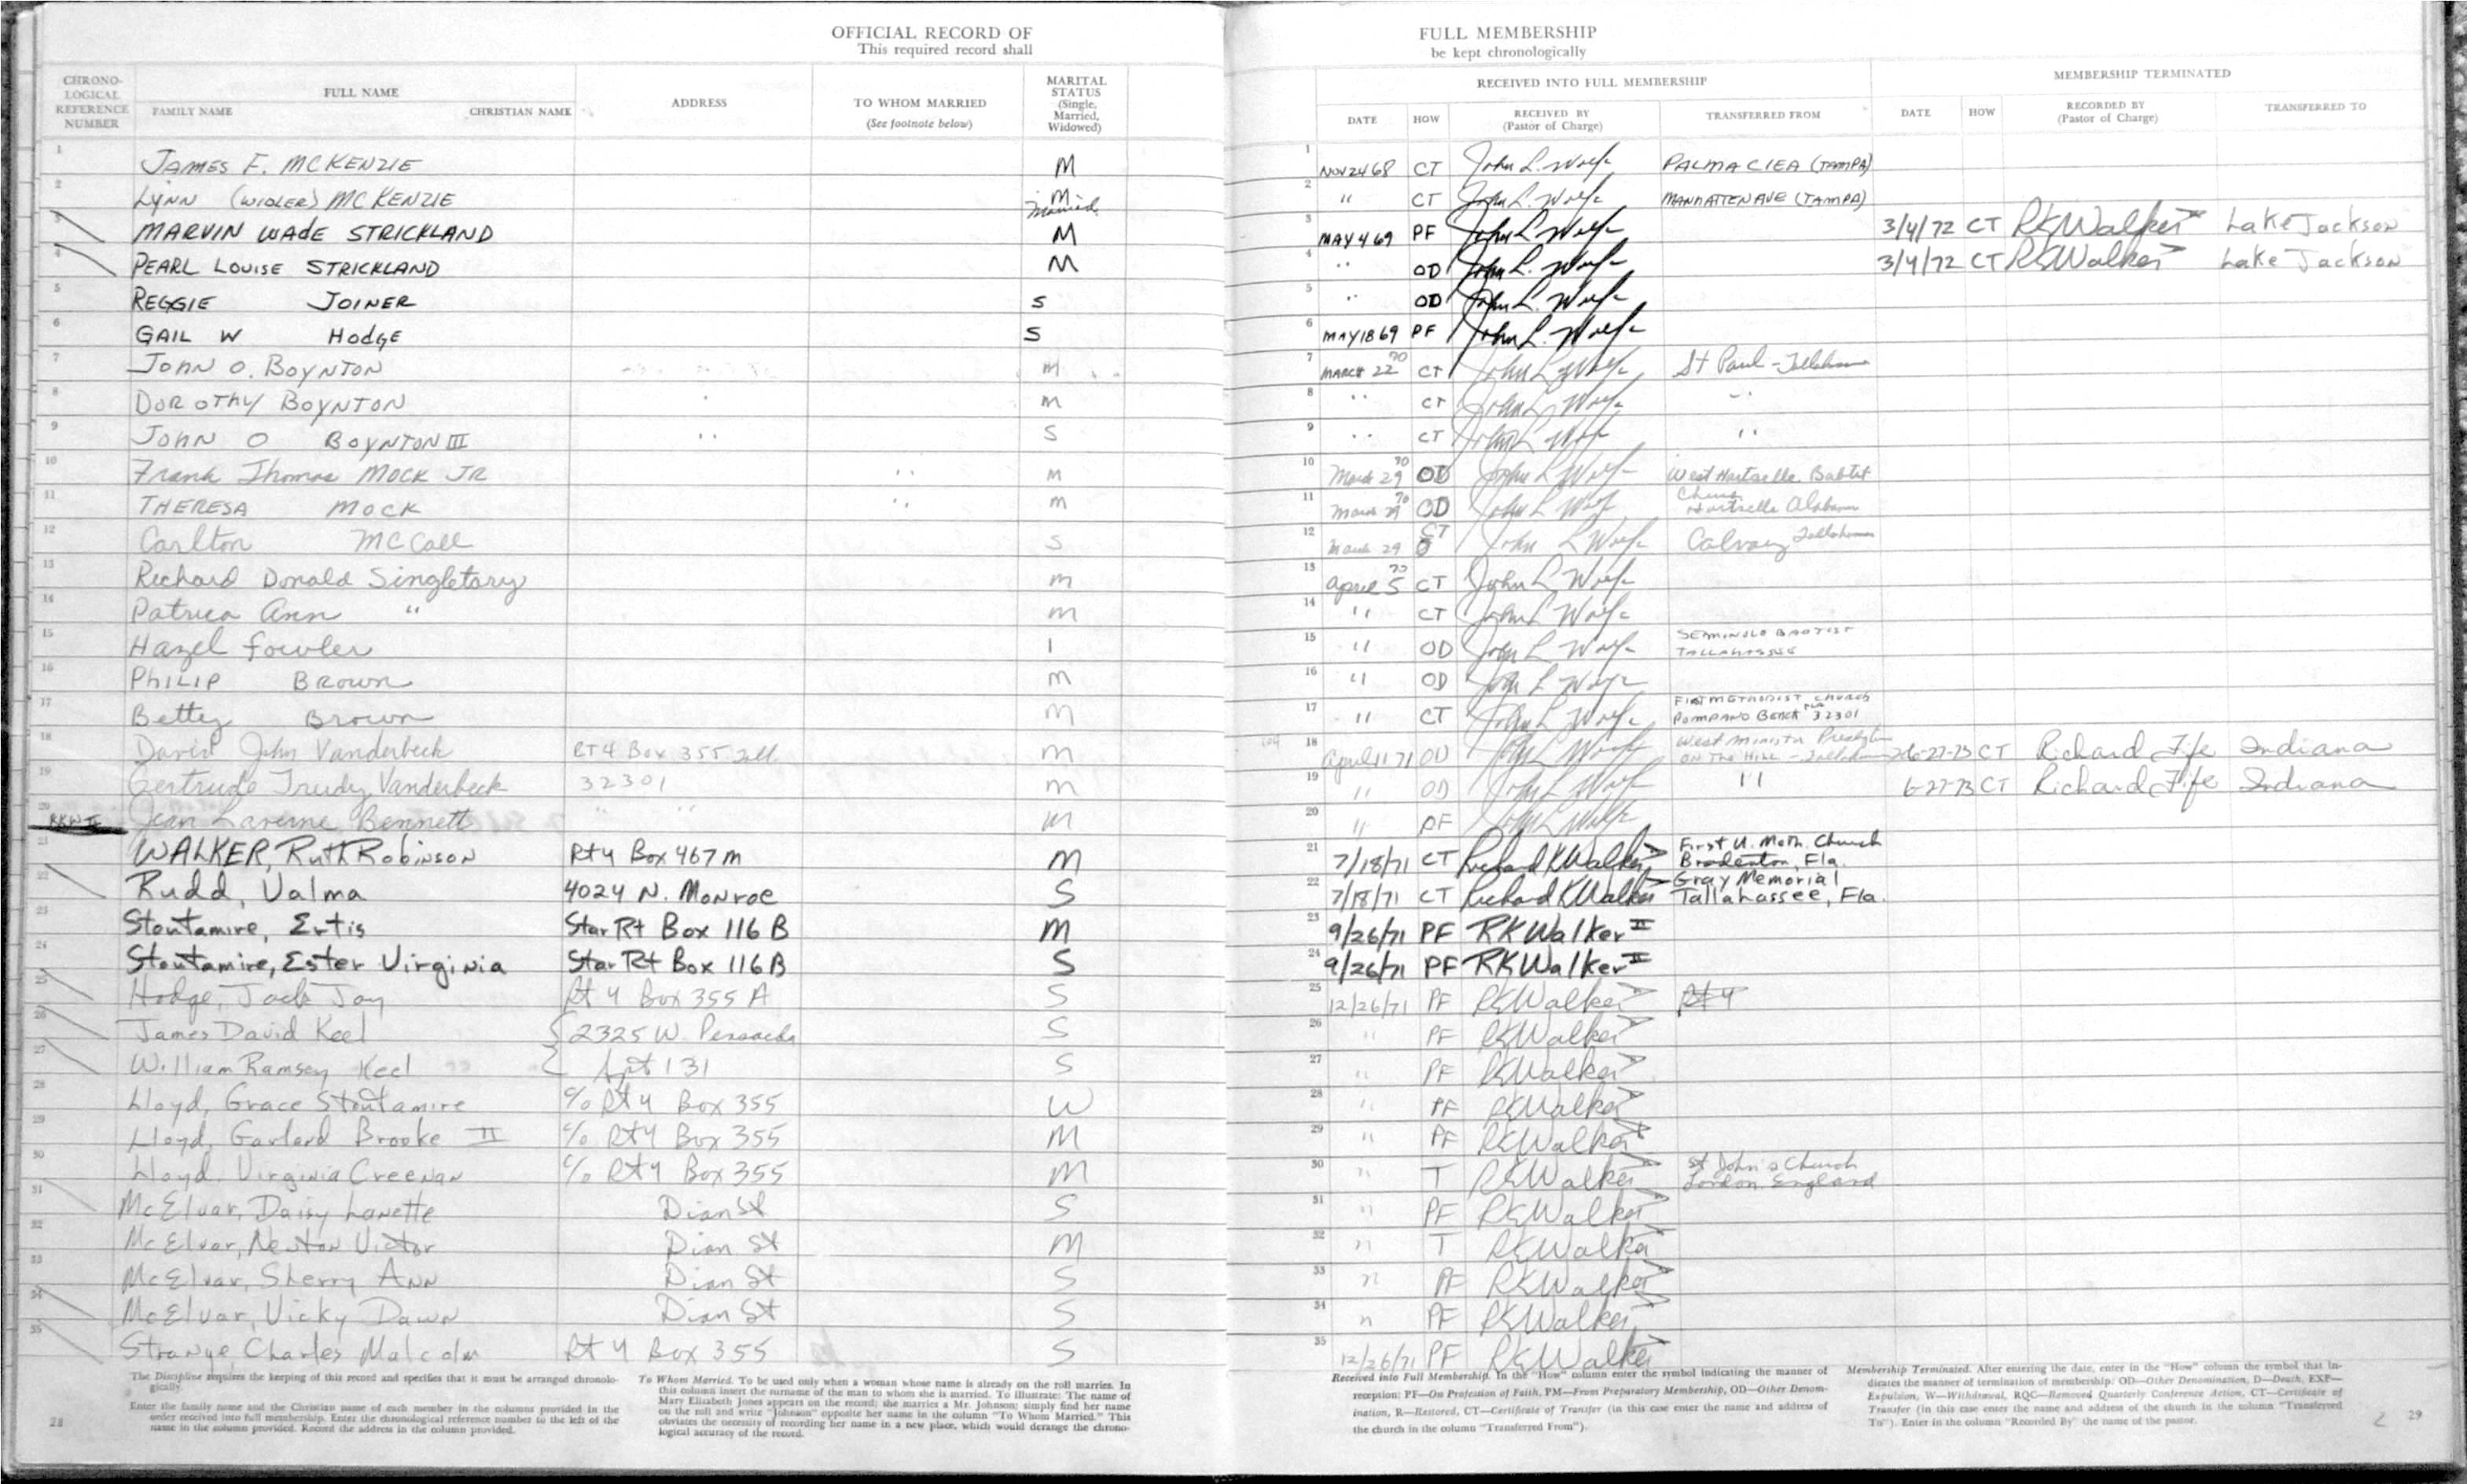 OFFICIAL RECORD OF
This required record shall
CHRONO-
LOGICAL
REFERENCE
NUMBER
FULL NAME
FAMILY NAME CHRISTIAN NAME
ADDRESS
TO WHOM MARRIED
(See footnote below)
MARITAL
STATUS
(Single,
Married,
Widowed)
1 JAMES F. MCKENZIE M
2 LYNN (WIDLER) MCKENZIE M
Married
3 MARVIN WADE STRICKLAND M
4 PEARL LOUISE STRICKLAND M
5 REGGIE JOINER S
6 GAIL W HODGE S
7 JOHN O. BOYNTON M
8 DOROTHY BOYNTON M
9 JOHN O BOYNTON III S
10 Frank Thomas MOCK JR M
11 THERESA MOCK M
12 Carlton McCall S
13 Richard Donald Singletary M
14 Patrica Ann " M
15 Hazel Fowler 1
16 PHILIP BROWN M
17 Betty Brown M
18 David John Vanderbeck RT 4 Box 355 Tall. M
19 Gertrude Trudy Vanderbeck 32301 M
20 Jean Laverne Bennett " " M
21 WALKER, Ruth Robinson Rt 4 Box 467 M M
22 Rudd, Valma 4024 N. Monroe S
23 Stoutamire, Ertis Star Rt Box 116 B M
24 Stoutamire, Ester Virginia Star Rt Box 116 B S
25 Hodge, Jack Jay Rt 4 Box 355 A S
26 James David Keel 2325 W. S
27 William Ramsey Keel Apt 131 S
28 Lloyd, Grace Stoutamire % Rt 4 Box 355 W
29 Lloyd, Garland Brooke II % Rt 4 Box 355 M
30 Lloyd. Virginia Creenan % Rt 4 Box 355 M
31 McElvar, Daisy Lanette Dian St S
32 McElvar, Newton Victor Dian St M
33 McElvar, Sherry Ann Dian St S
34 McElvar, Vicky Dawn Dian St S
35 Strange, Charles Malcolm Rt 4 Box 355 S
The Discipline requires the keeping of this record and specifies that it must be arranged chronolo-
gically.
Enter the family name and the Christian name of each member in the columns provided in the
order received into full membership. Enter the chronological reference number to the left of the
name in the column provided. Record the address in the column provided.
To Whom Married. To be used only when a woman whose name is already on the roll marries. In
this column insert the surname of the man to whom she is married. To illustrate: The name of
Mary Elizabeth Jones appears on the record; she marries a Mr. Johnson; simply find her name
on the roll and write "Johnson" opposite her name in the column "To Whom Married." This
obviates the necessity of recording her name in a new place, which would derange the chrono-
logical accuracy of the record.
28
FULL MEMBERSHIP
be kept chronologically
RECEIVED INTO FULL MEMBERSHIP
MEMBERSHIP TERMINATED
DATE HOW RECEIVED BY
(Pastor of Charge)
TRANSFERRED FROM
DATE HOW RECORDED BY
(Pastor of Charge)
TRANSFERRED TO
1 NOV 24 68 CT John L. Wolfe PALMA CIEA (TAMPA)
2 " CT John L. Wolfe MANHATTEN AVE (TAMPA)
3 MAY 4 69 PF John L Wolfe 3/4/72 CT RKWalker Lake Jackson
4 " OD John L. Wolfe 3/4/72 CT RKWalker Lake Jackson
5 " OD John L. Wolfe
6 MAY 18 69 PF John L. Wolfe
7 MARCH 22 70 CT John L Wolfe St Paul - Tallahassee
8 " CT John L Wolfe "
9 " CT John L Wolfe "
10 March 29 70 OD John L Wolfe West Hartselle Babtist
11 March 29 70 OD John L Wolfe Church
Hartselle Alabama
12 March 29 CT John L Wolfe Calvary Tallahassee
13 April 5 70 CT John L Wolfe
14 " CT John L Wolfe
15 " OD John L Wolfe SEMINOLE BAPTIST
TALLAHASSEE
16 " OD John L Wolfe
17 " CT John L Wolfe FIRST METHODIST CHURCH
POMPANO BEACH FLA 32301
18 April 11 71 OD John L Wolfe West Minister Presbyterian
ON THE HILL - Tallahassee 6-27-73 CT Richard Fife Indiana
19 " OD John L Wolfe " 6-27-73 CT Richard Fife Indiana
20 " PF John L Wolfe
21 7/18/71 CT Richard K Walker First U. Meth. Church
Bradenton, Fla.
22 7/18/71 CT Richard K Walker Gray Memorial
Tallahassee, Fla.
23 9/26/71 PF RKWalker II
24 9/26/71 PF RKWalker II
25 12/26/71 PF RKWalker Rt 4
26 " PF RKWalker
27 " PF RKWalker
28 " PF RKWalker
29 " PF RKWalker
30 " T RKWalker St John's Church
London England
31 " PF RKWalker
32 " T RKWalker
33 " PF RKWalker
34 " PF RKWalker
35 12/26/71 PF RKWalker
Received into Full Membership. In the "How" column enter the symbol indicating the manner of
reception: PF—On Profession of Faith, PM—From Preparatory Membership, OD—Other Denom-
ination, R—Restored, CT—Certificate of Transfer (in this case enter the name and address of
the church in the column "Transferred From").
Membership Terminated. After entering the date, enter in the "How" column the symbol that in-
dicates the manner of termination of membership: OD—Other Denomination, D—Death, EXP—
Expulsion, W—Withdrawal, RQC—Removed Quarterly Conference Action, CT—Certificate of
Transfer (in this case enter the name and address of the church in the column "Transferred
To"). Enter in the column "Recorded By" the name of the pastor.
29